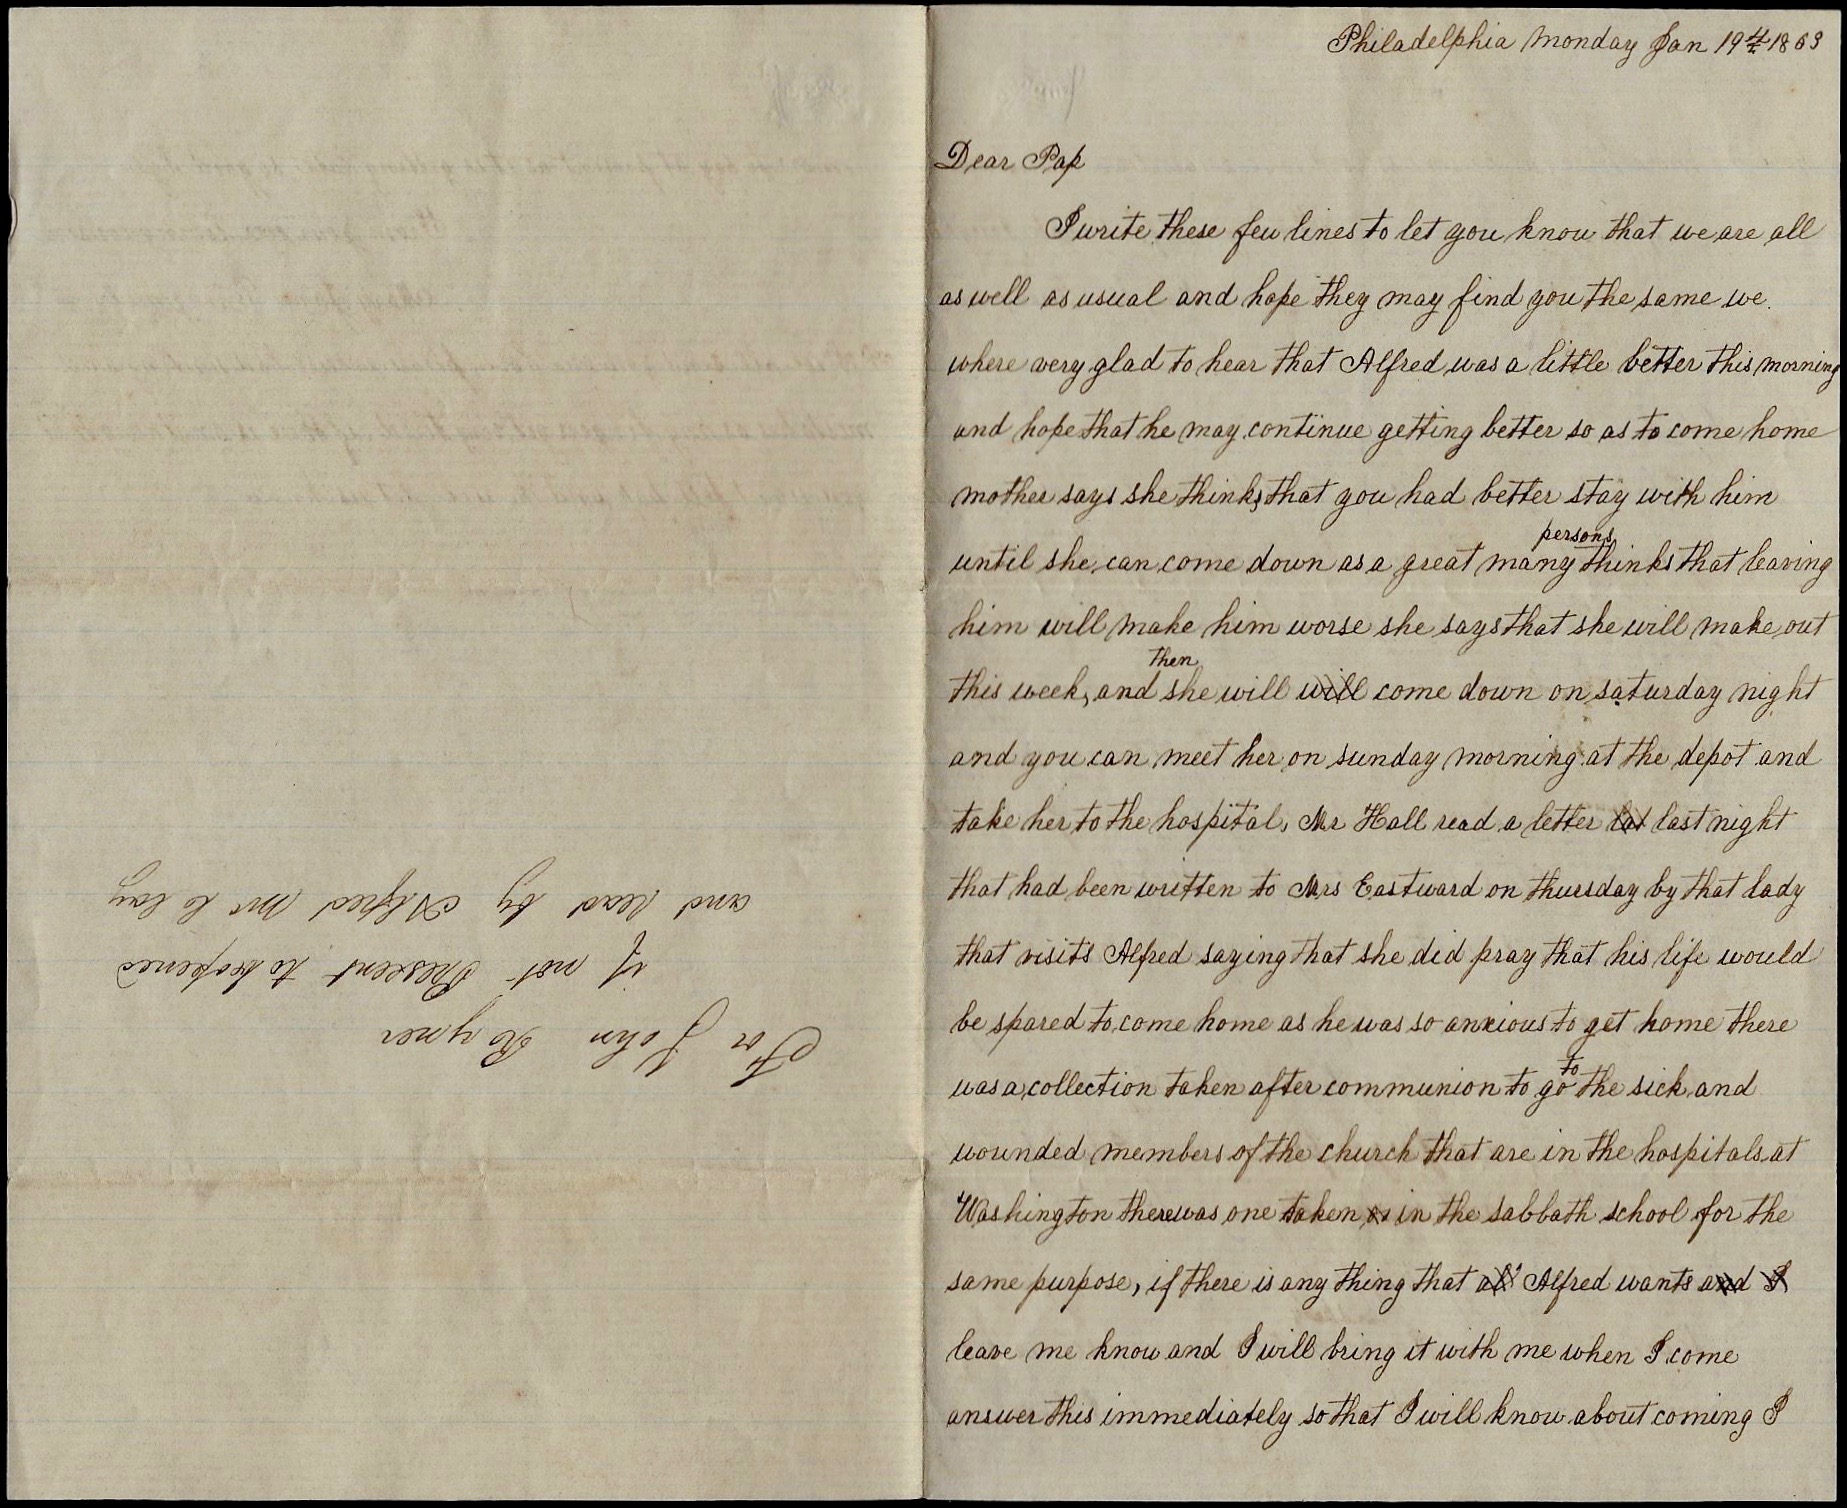 Philadelphia Monday Jan 19th 1863
Dear Pap
I write these few lines to let you know that we are all
as well as usual and hope they may find you the same we
where very glad to hear that Alfred was a little better this morning
and hope that he may continue getting better so as to come home
mother says she thinks that you had better stay with him
until she can come down as a great many persons thinks that leaving
him will make him worse she says that she will make out
this week, and then she will will come down on saturday night
and you can meet her on sunday morning at the depot and
take her to the hospital, Mr Hall read a letter lat last night
that had been written to Mrs Eastward on thursday by that lady
that visits Alfred saying that she did pray that his life would
be spared to come home as he was so anxious to get home there
was a collection taken after communion to go to the sick and
wounded members of the church that are in the hospitals at
Washington there was one taken in the sabbath school for the
same purpose, if there is any thing that al Alfred wants and I
leave me know and I will bring it with me when I come
answer this immediately so that I will know about coming I
For John Rymer
if not Present to be opened
and read by Alfred